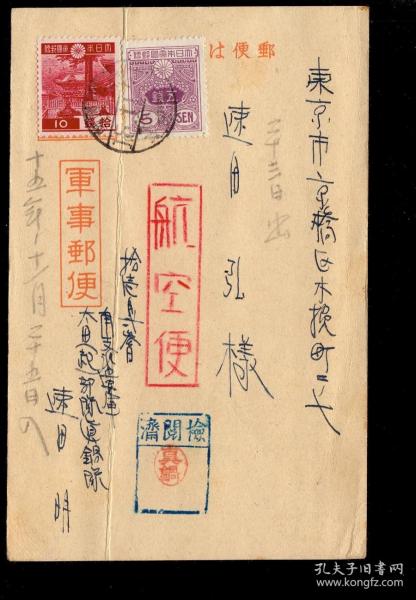 郵便は
大日本帝國郵便
拾銭
10
大日本帝國郵便
5
SEN
東京市京橋區木挽町二ノ七
二十三日出
速田弘様
航空便
軍事郵便
十五年十二月二十五日
南支派遣軍
太田起部隊真鍋隊
速田明
檢閲濟
真鍋
孔夫子旧书网
book.kongfz.com